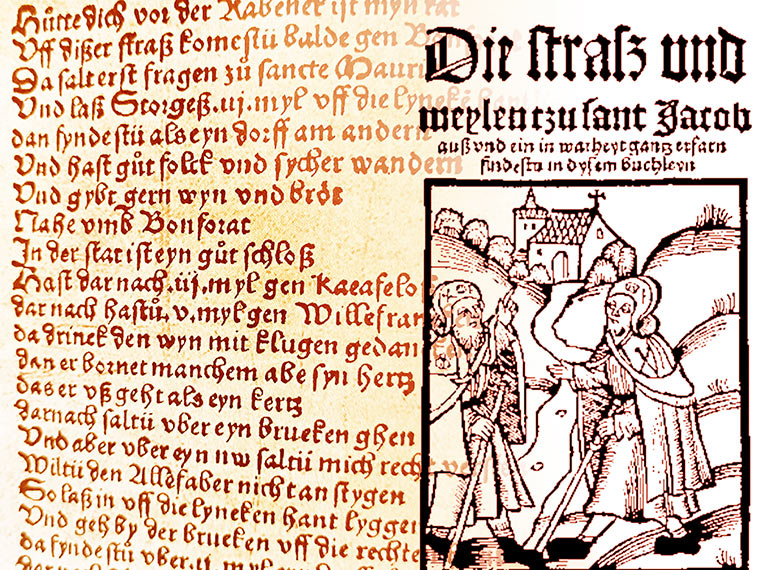 Hütte dich vor der Rabener ist myn rat
Uff dißer straß komestü balde gen
Da salt erst fragen zů sancte Mauri
Und laß Storgeß .ij. myl uff die lyneke
dan fyndestü als eyn dorff am andern
Und hast gůt folck und sycher wandern
Und gybt gern wyn und bröt
Nahe umb Bonforat
In der stat ist eyn gůt schloß
Hast dar nach .iij. myl gen Kacafelo
dar nach hastů .v. myl gen Willefran
da drinck den wyn mit klugen gedan
dan er bornet manchem abe syn hertz
das er uß geht als eyn kertz
darnach saltü uber eyn brucken ghen
Und aber uber eyn nw saltü mich recht
Wiltü den Allefaber nicht an stygen
So laß in uff die lyneken hant lyggen
Und geh by der brucken uff die rechte
da fyndestü uber .ij. myl eyn
Die straß und
meylen tzu sant Jacob
auß und ein in warheyt gantz erfarn
findestu in dysem buchleyn